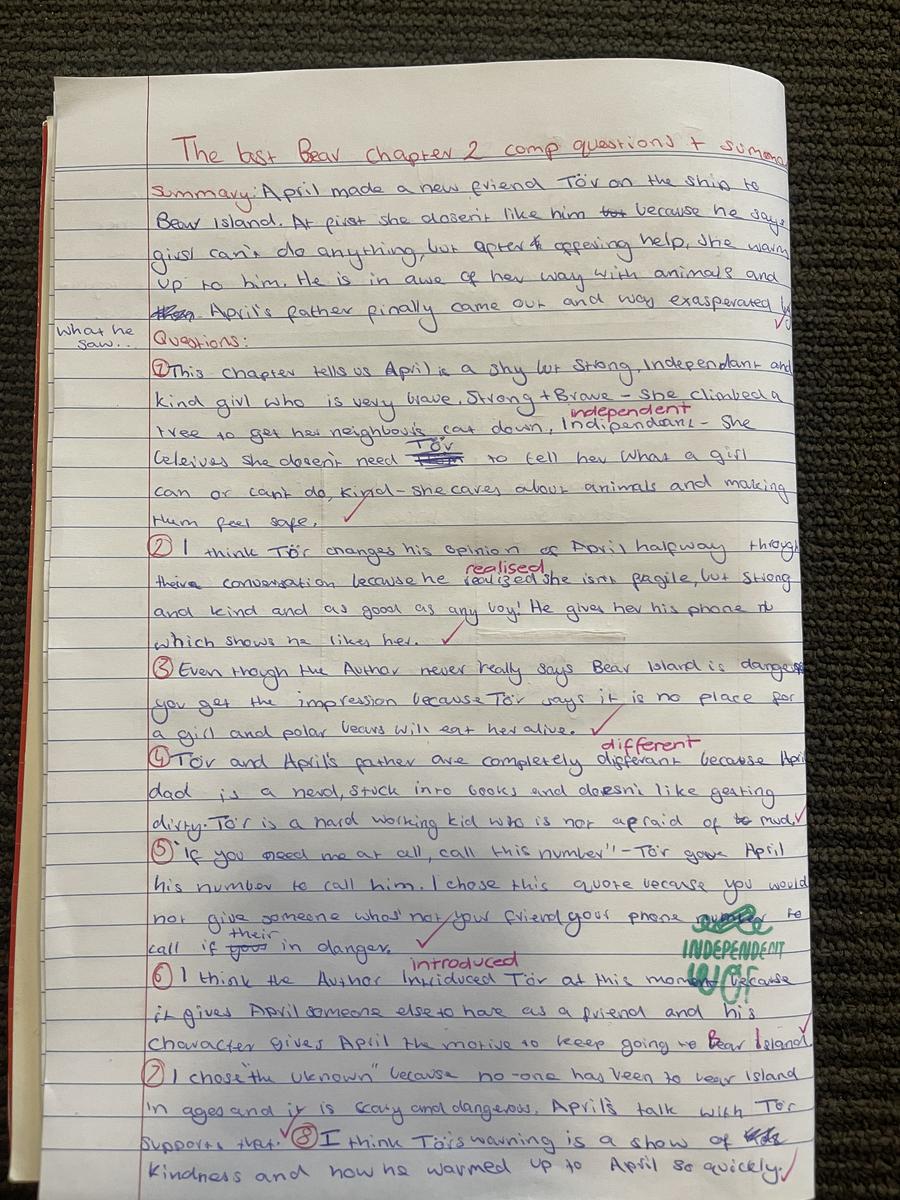 The last Bear chapter 2 comp questions + summa
Summary: April made a new friend Tör on the ship to
Bear Island. At first she dosen't like him but because he says
girsl can't do anything, but after offering help, she warm
up to him. He is in awe of her way with animals and
April's father finally came out and was exasperated by
what he
saw..
Questions:
①This chapter tells us April is a shy but strong, Independant and
kind girl who is very brave. Strong + Brave - she climbed a
independent
tree to get her neighbour's cat down, Indipendant - She
Tör
beleives she dosen't need to tell her what a girl
can or can't do, kind - she cares about animals and making
them feel safe.
② I think Tör changes his opinion of April halfway through
realised
theire conversation because he realized she isn't fragile, but strong
and kind and as good as any boy! He gives her his phone n
which shows he likes her.
③ Even though the Author never really says Bear Island is dangerous
you get the impression because Tör says it is no place for
a girl and polar bears will eat her alive.
different
④Tör and April's father are completely differant because April
dad is a nerd, stuck into books and doesn't like getting
dirty. Tör is a hard working kid who is not afraid of to mud.
⑤"If you need me at all, call this number" - Tör gave April
his number to call him. I chose this quote because you would
not give someone whos' not your friend your phone number to
their
call if your in danger.
INDEPENDENT
introduced
⑥ I think the Author Intriduced Tör at this moment because
WOF
it gives April someone else to have as a friend and his
character gives April the motive to keep going to Bear Island
⑦ I chose "the uknown" because no-one has been to bear island
in ages and it is scary and dangerous. April's talk with Tör
supports that. ⑧ I think Tör's warning is a show of
kindness and how he warmed up to April so quickly.